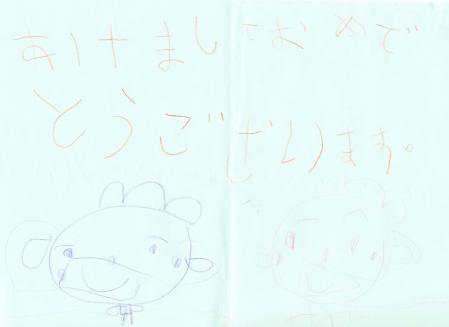 あけましておめで
とうございます。